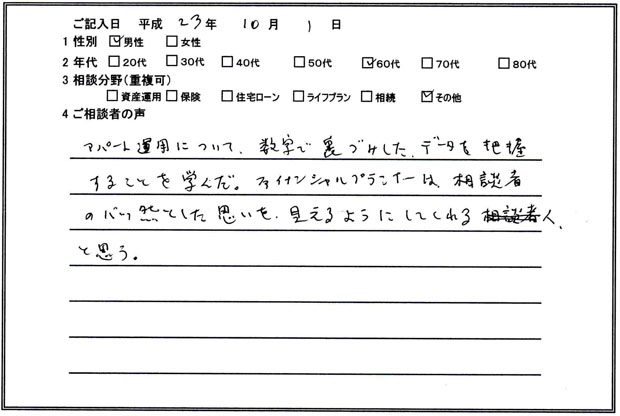 ご記入日 平成 23年 10月 1日
1 性別 ☑男性 □女性
2 年代 □20代 □30代 □40代 □50代 ☑60代 □70代 □80代
3 相談分野(重複可)
□資産運用 □保険 □住宅ローン □ライフプラン □相続 ☑その他
4 ご相談者の声
アパート運用について、数字で裏づけした、データを把握
することを学んだ。ファイナンシャルプランナーは、相談者
のバク然とした思いを、見えるようにしてくれる相談者人、
と思う。